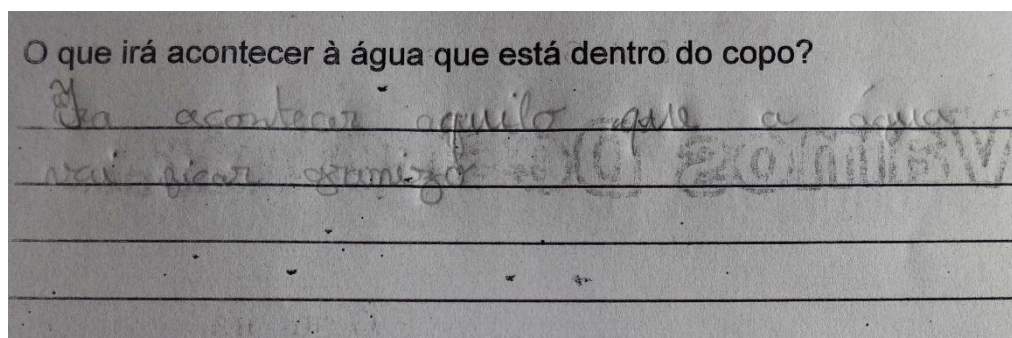 O que irá acontecer à água que está dentro do copo?
Ira acontecer aquilo que a água
vai ficar granizo